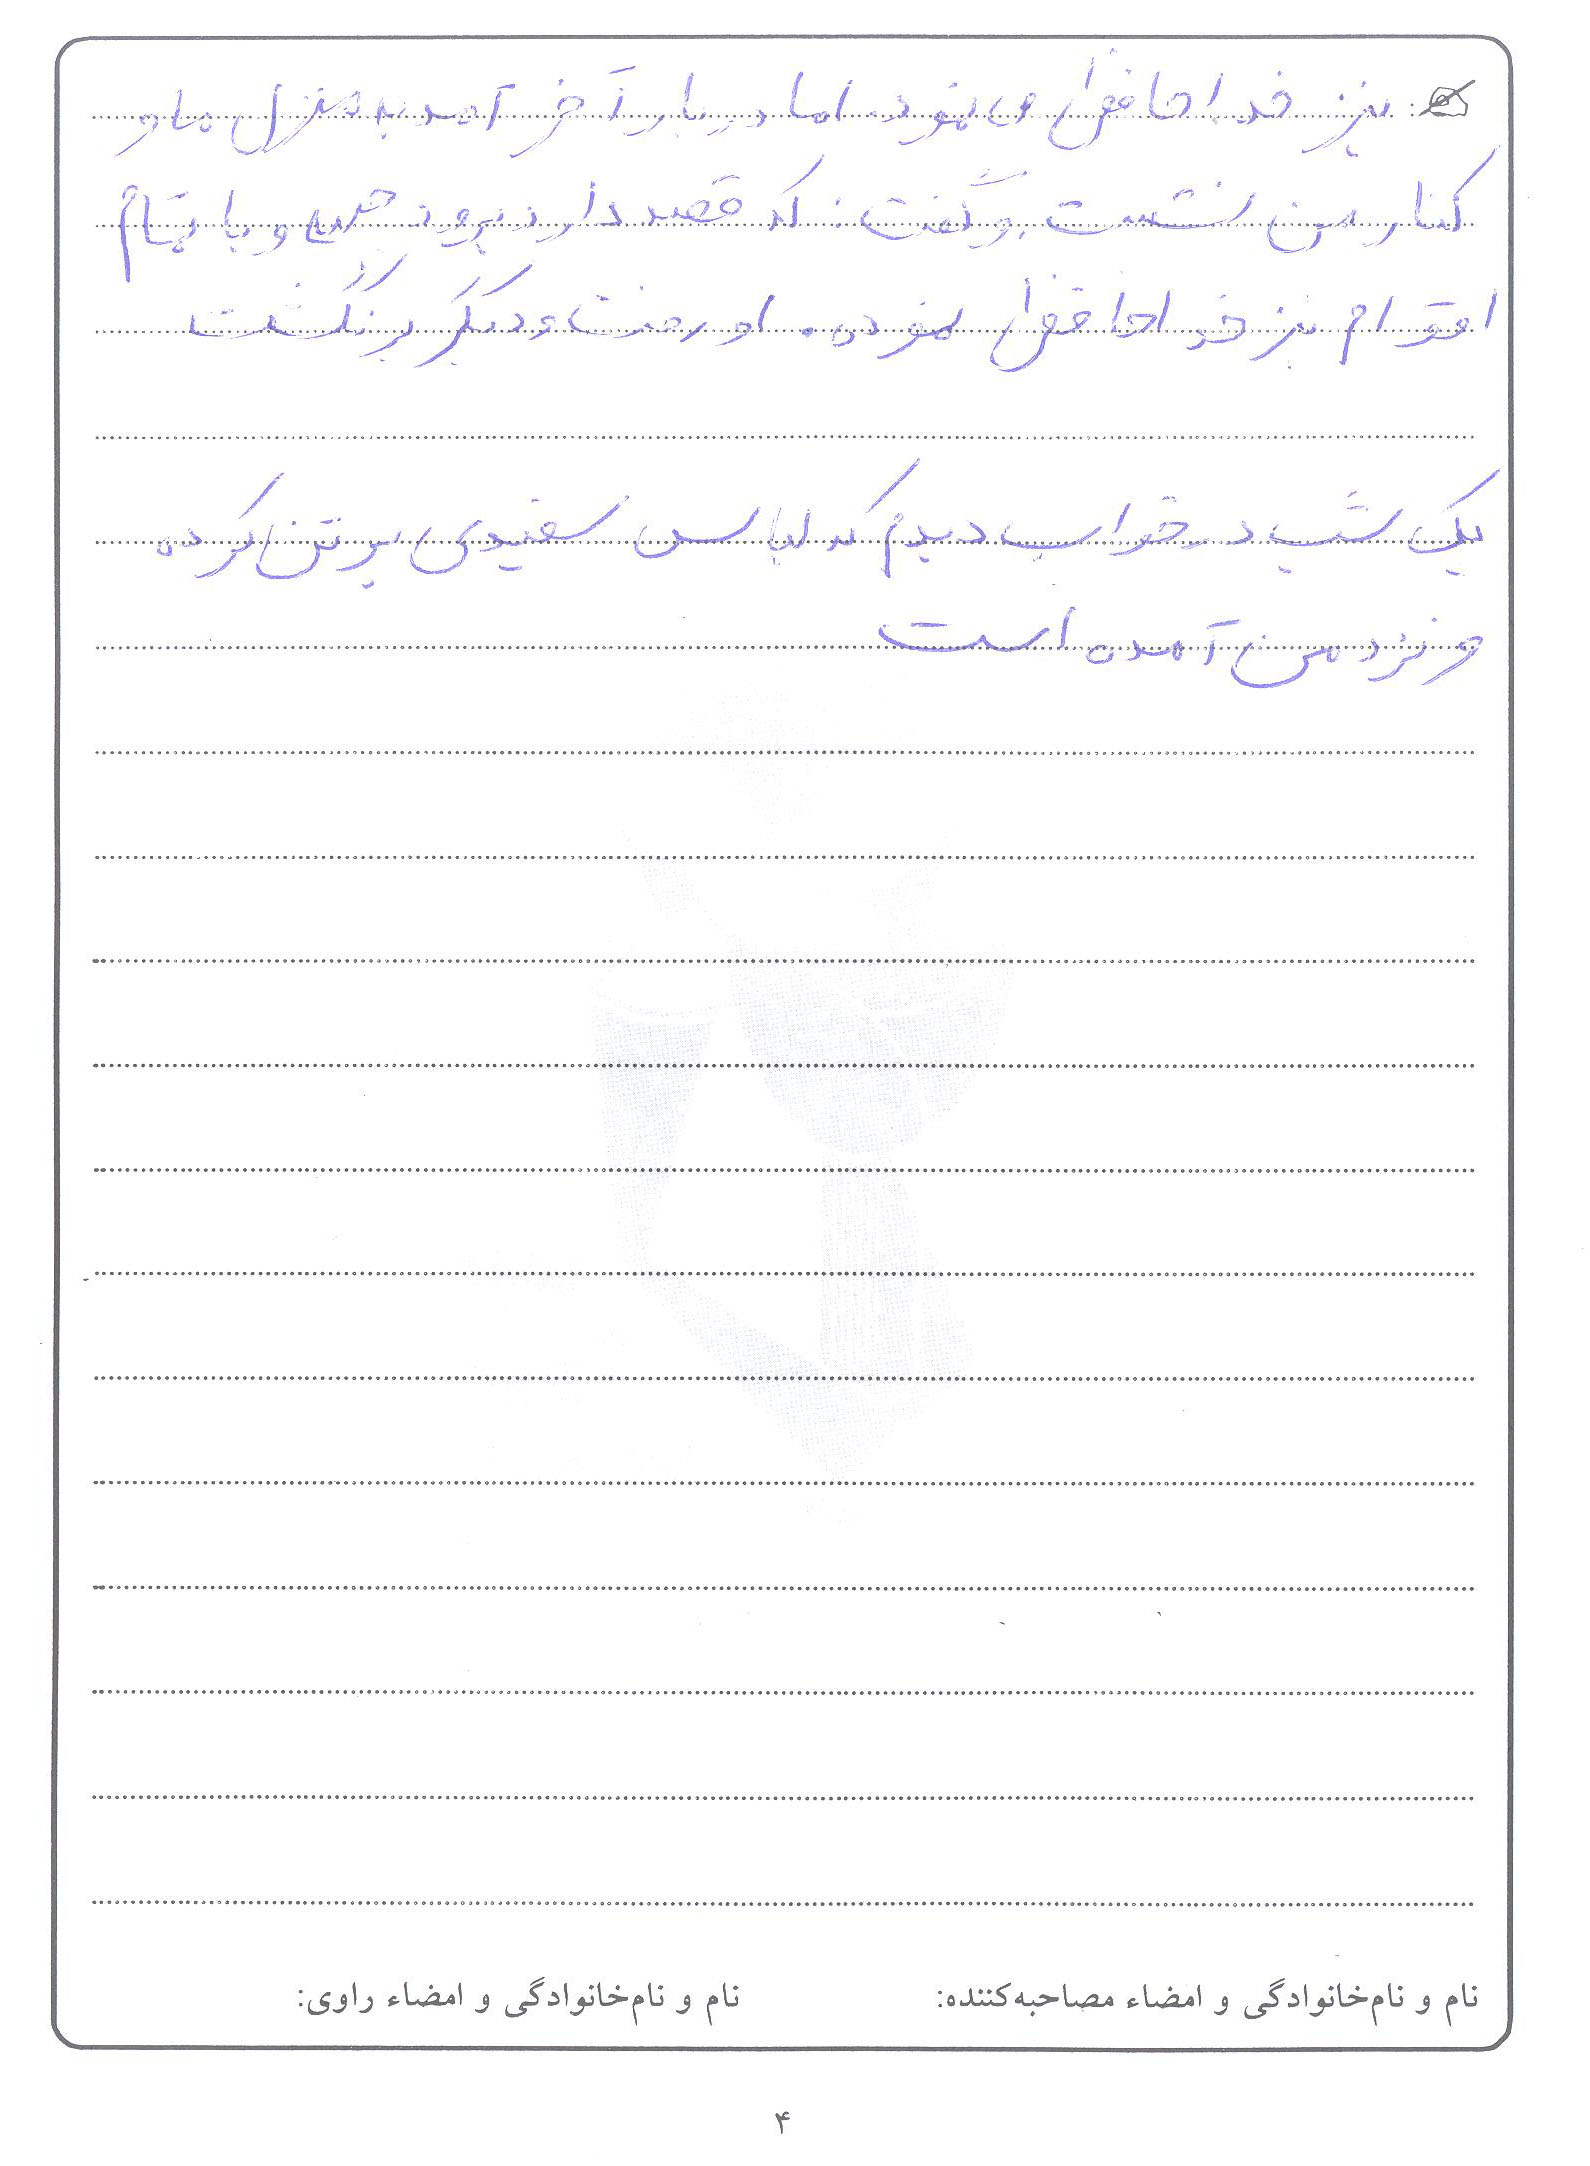 نیز خداحافظی می نمود. اما در بار آخر آمد به منزل ما و
کنار من نشست و گفت: که قصد دارند بروند جبهه و با تمام
اقوام نیز خداحافظی نموده. او رفت و دیگر برنگشت
یک شب در خواب دیدم که لباس سفیدی بر تن کرده
و نزد من آمده است
نام و نام‌خانوادگی و امضاء مصاحبه‌کننده: نام و نام‌خانوادگی و امضاء راوی:
۴